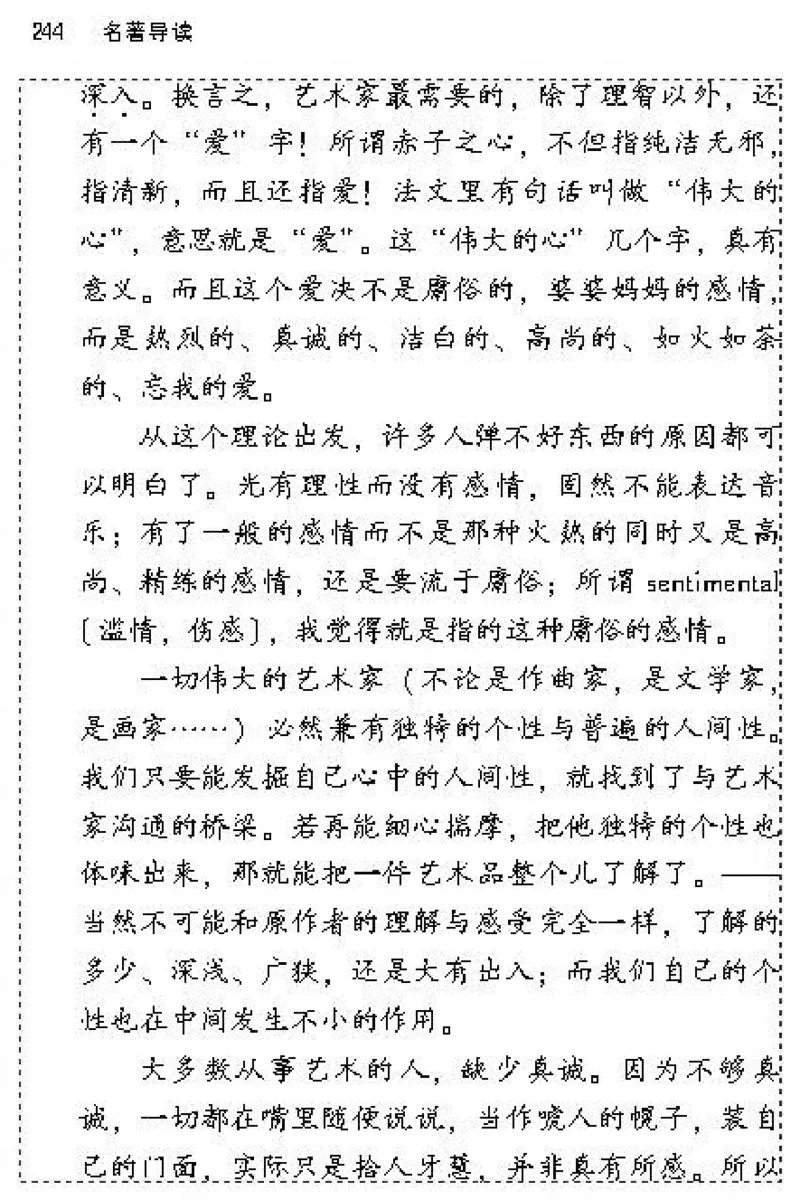 244 名著导读
深入。换言之，艺术家最需要的，除了理智以外，还
有一个“爱”字！所谓赤子之心，不但指纯洁无邪，
指清新，而且还指爱！法文里有句话叫做“伟大的
心”，意思就是“爱”。这“伟大的心”几个字，真有
意义。而且这个爱决不是庸俗的，婆婆妈妈的感情，
而是热烈的、真诚的、洁白的、高尚的、如火如荼
的、忘我的爱。
从这个理论出发，许多人弹不好东西的原因都可
以明白了。光有理性而没有感情，固然不能表达音
乐；有了一般的感情而不是那种火热的同时又是高
尚、精练的感情，还是要流于庸俗；所谓 sentimental
〔滥情，伤感〕，我觉得就是指的这种庸俗的感情。
一切伟大的艺术家（不论是作曲家，是文学家，
是画家……）必然兼有独特的个性与普遍的人间性。
我们只要能发掘自己心中的人间性，就找到了与艺术
家沟通的桥梁。若再能细心揣摩，把他独特的个性也
体味出来，那就能把一件艺术品整个儿了解了。——
当然不可能和原作者的理解与感受完全一样，了解的
多少、深浅、广狭，还是大有出入；而我们自己的个
性也在中间发生不小的作用。
大多数从事艺术的人，缺少真诚。因为不够真
诚，一切都在嘴里随便说说，当作唬人的幌子，装自
己的门面，实际只是拾人牙慧，并非真有所感。所以